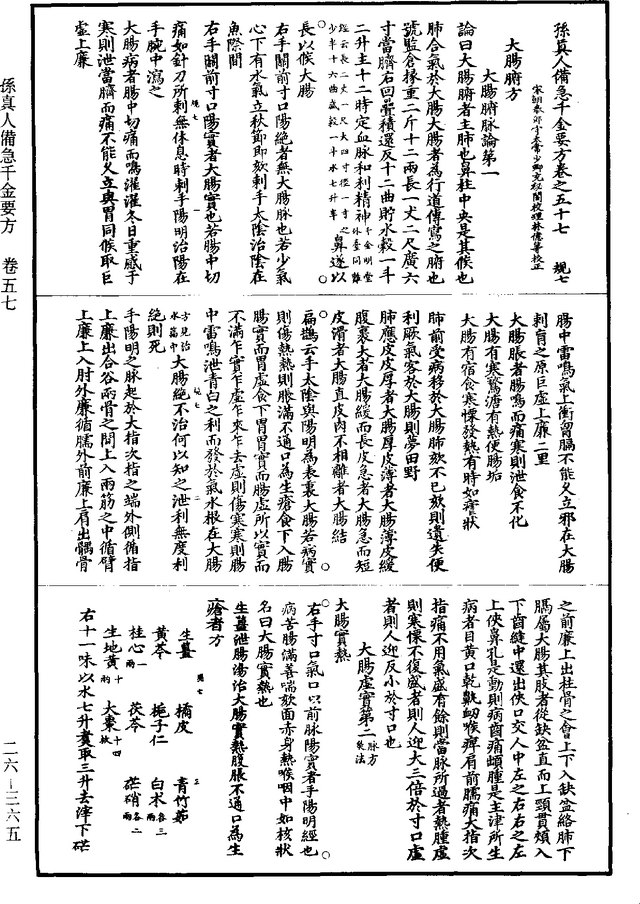 孫真人備急千金要方卷之五十七 規七
宋朝奉郎守太常少卿充秘閣校理林億等校正
大腸腑方
大腸腑脉論第一
論曰大腸腑者主肺也鼻柱中央是其候也
肺合氣於大腸大腸者為行道傳寫之腑也
號監倉掾重二斤十二兩長一丈二尺廣六
寸當臍右回疊積還反十二曲貯水穀一斗
二升主十二時定血脉和利精神
鼻遂以
長以候大腸
○右手關前寸口陽絕者無大腸脉也若少氣
心下有水氣立秋節即欬刺手太陰治陰在
魚際間
右手關前寸口陽實者大腸實也若腸中切
痛如針刀所刺無休息時刺手陽明治陽在
手腕中瀉之
大腸病者腸中切痛而鳴濯濯冬日重感于
寒則泄當臍而痛不能久立與胃同候取巨
虛上廉
腸中雷鳴氣上衝胷膈不能久立邪在大腸
刺肓之原巨虛上廉三里
大腸脹者腸鳴而痛寒則泄食不化
大腸有寒鶩溏有熱便腸垢
大腸有宿食寒慄發熱有時如瘧狀
肺前受病移於大腸肺欬不已欬則遺失便
利厥氣客於大腸則夢田野
肺應皮皮厚者大腸厚皮薄者大腸薄皮緩
腹裹大者大腸緩而長皮急者大腸急而短
皮滑者大腸直皮肉不相離者大腸結
○扁鵲云手太陰與陽明為表裏大腸若病實
則傷熱熱則脹滿不通口為生瘡食下入腸
腸實而胃虛食下胃胃實而腸虛所以實而
不滿乍實乍虛乍來乍去虛則傷寒寒則腸
中雷鳴泄青白之利而發於氣水根在大腸
方見治水篇中 大腸絕不治何以知之泄利無度利
絕則死
手陽明之脉起於大指次指之端外側循指
上廉出合谷兩骨之間上入兩筋之中循臂
上廉上入肘外廉循臑外前廉上肩出髃骨
之前廉上出柱骨之會上下入缺盆絡肺下
膈屬大腸其支者從缺盆直而上頸貫頰入
下齒縫中還出俠口交人中左之右右之左
上俠鼻孔是動則病齒痛䪼腫是主津所生
病者目黃口乾鼽衂喉痺肩前臑痛大指次
指痛不用氣盛有餘則當脉所過者熱腫虛
則寒慄不復盛者則人迎大三倍於寸口虛
者則人迎反小於寸口也
大腸虛實第二
大腸實熱
○右手寸口氣口以前脉陽實者手陽明經也
病苦腸滿善喘欬面赤身熱喉咽中如核狀
名曰大腸實熱也
生薑泄腸湯治大腸實熱腹脹不通口為生
瘡者方
生薑 橘皮 青竹茹
黃芩 梔子仁 白术各三兩
桂心一兩 茯苓 芒硝各二兩
生地黃十兩 大棗十四枚
右十一味以水七升煑取三升去滓下芒
孫真人備急千金要方 卷五七
二六—三六五